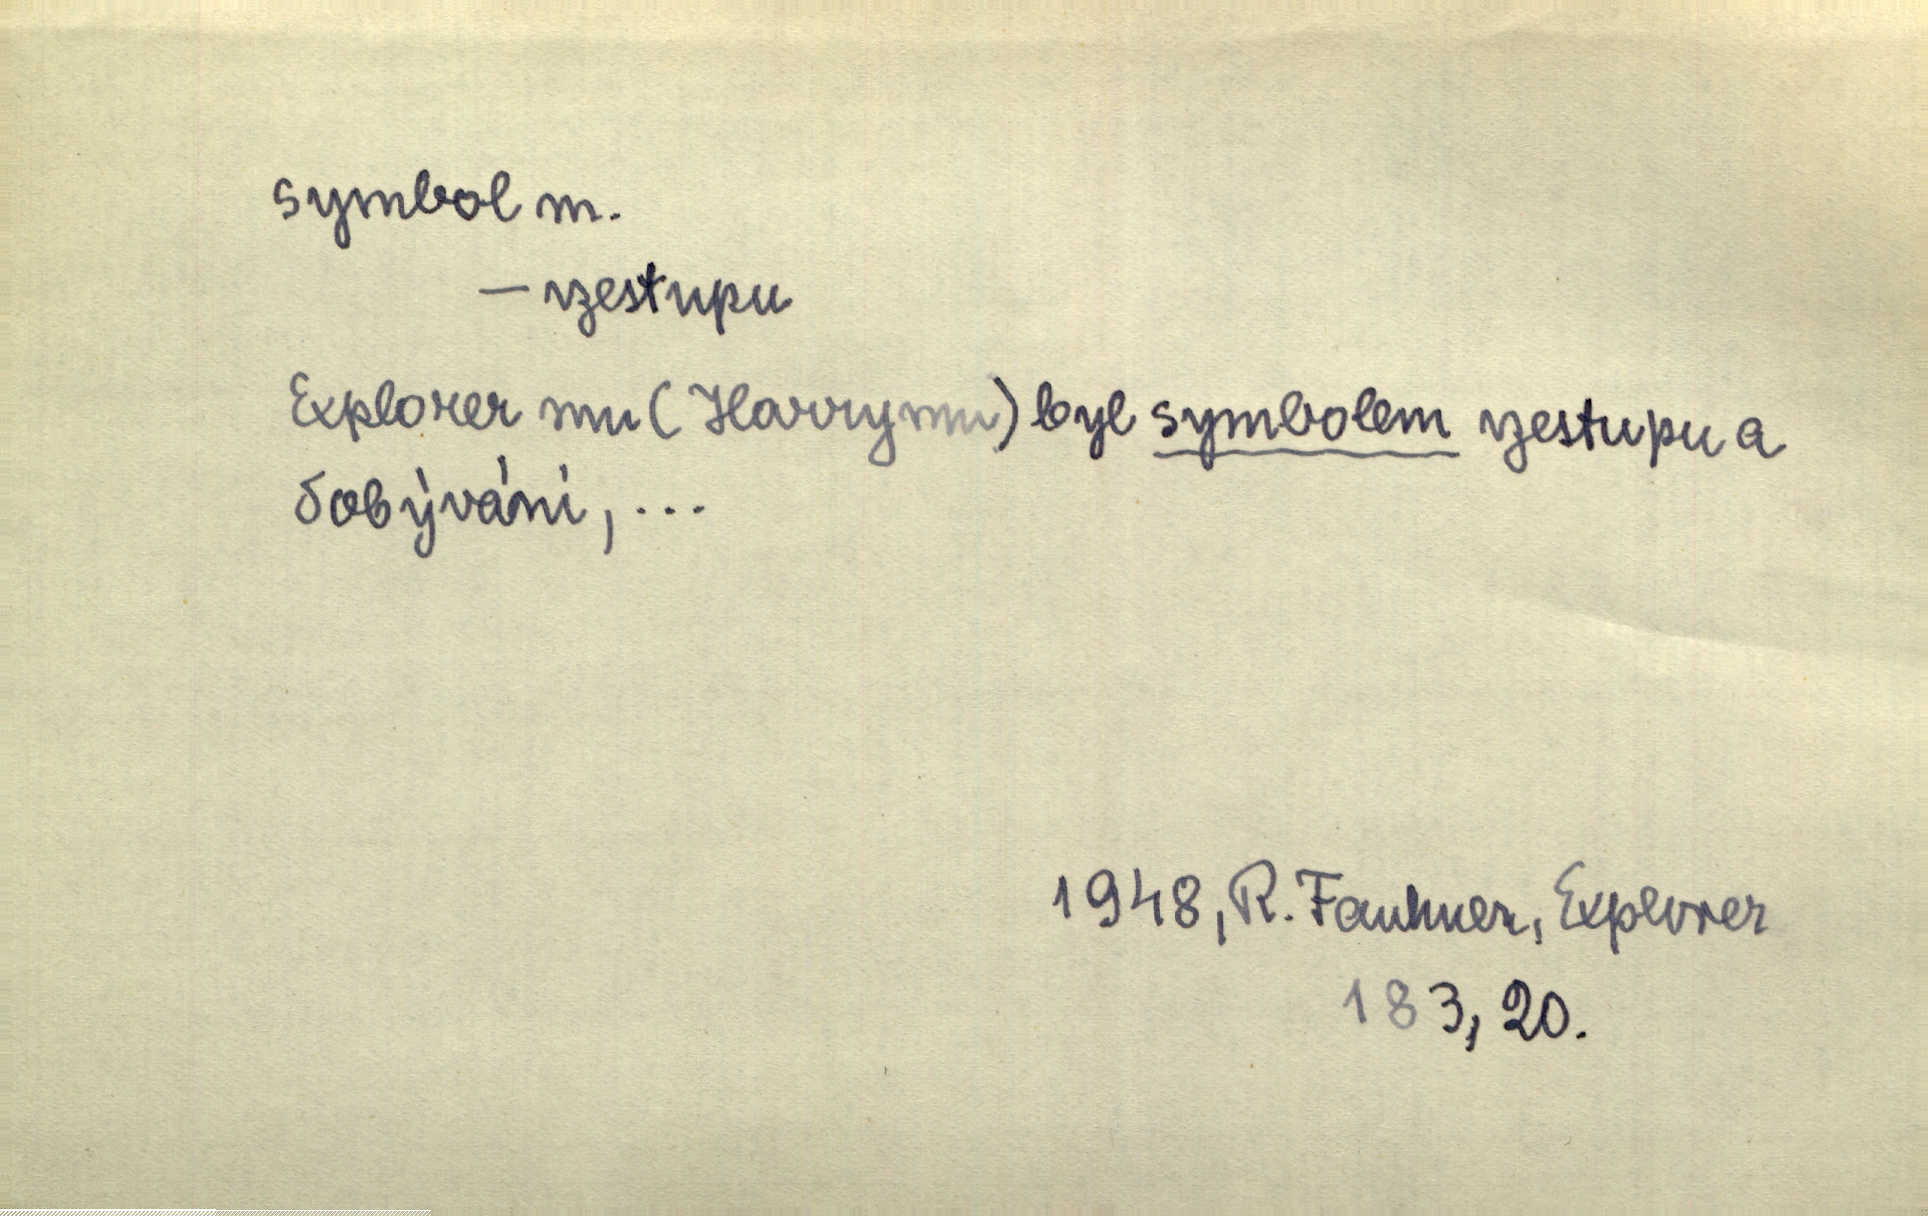 symbol m.
— vzestupu
Explorer mu (Harrymu) byl symbolem vzestupu a
dobývání, ...
1948, R. Faukner, Explorer
183, 20.